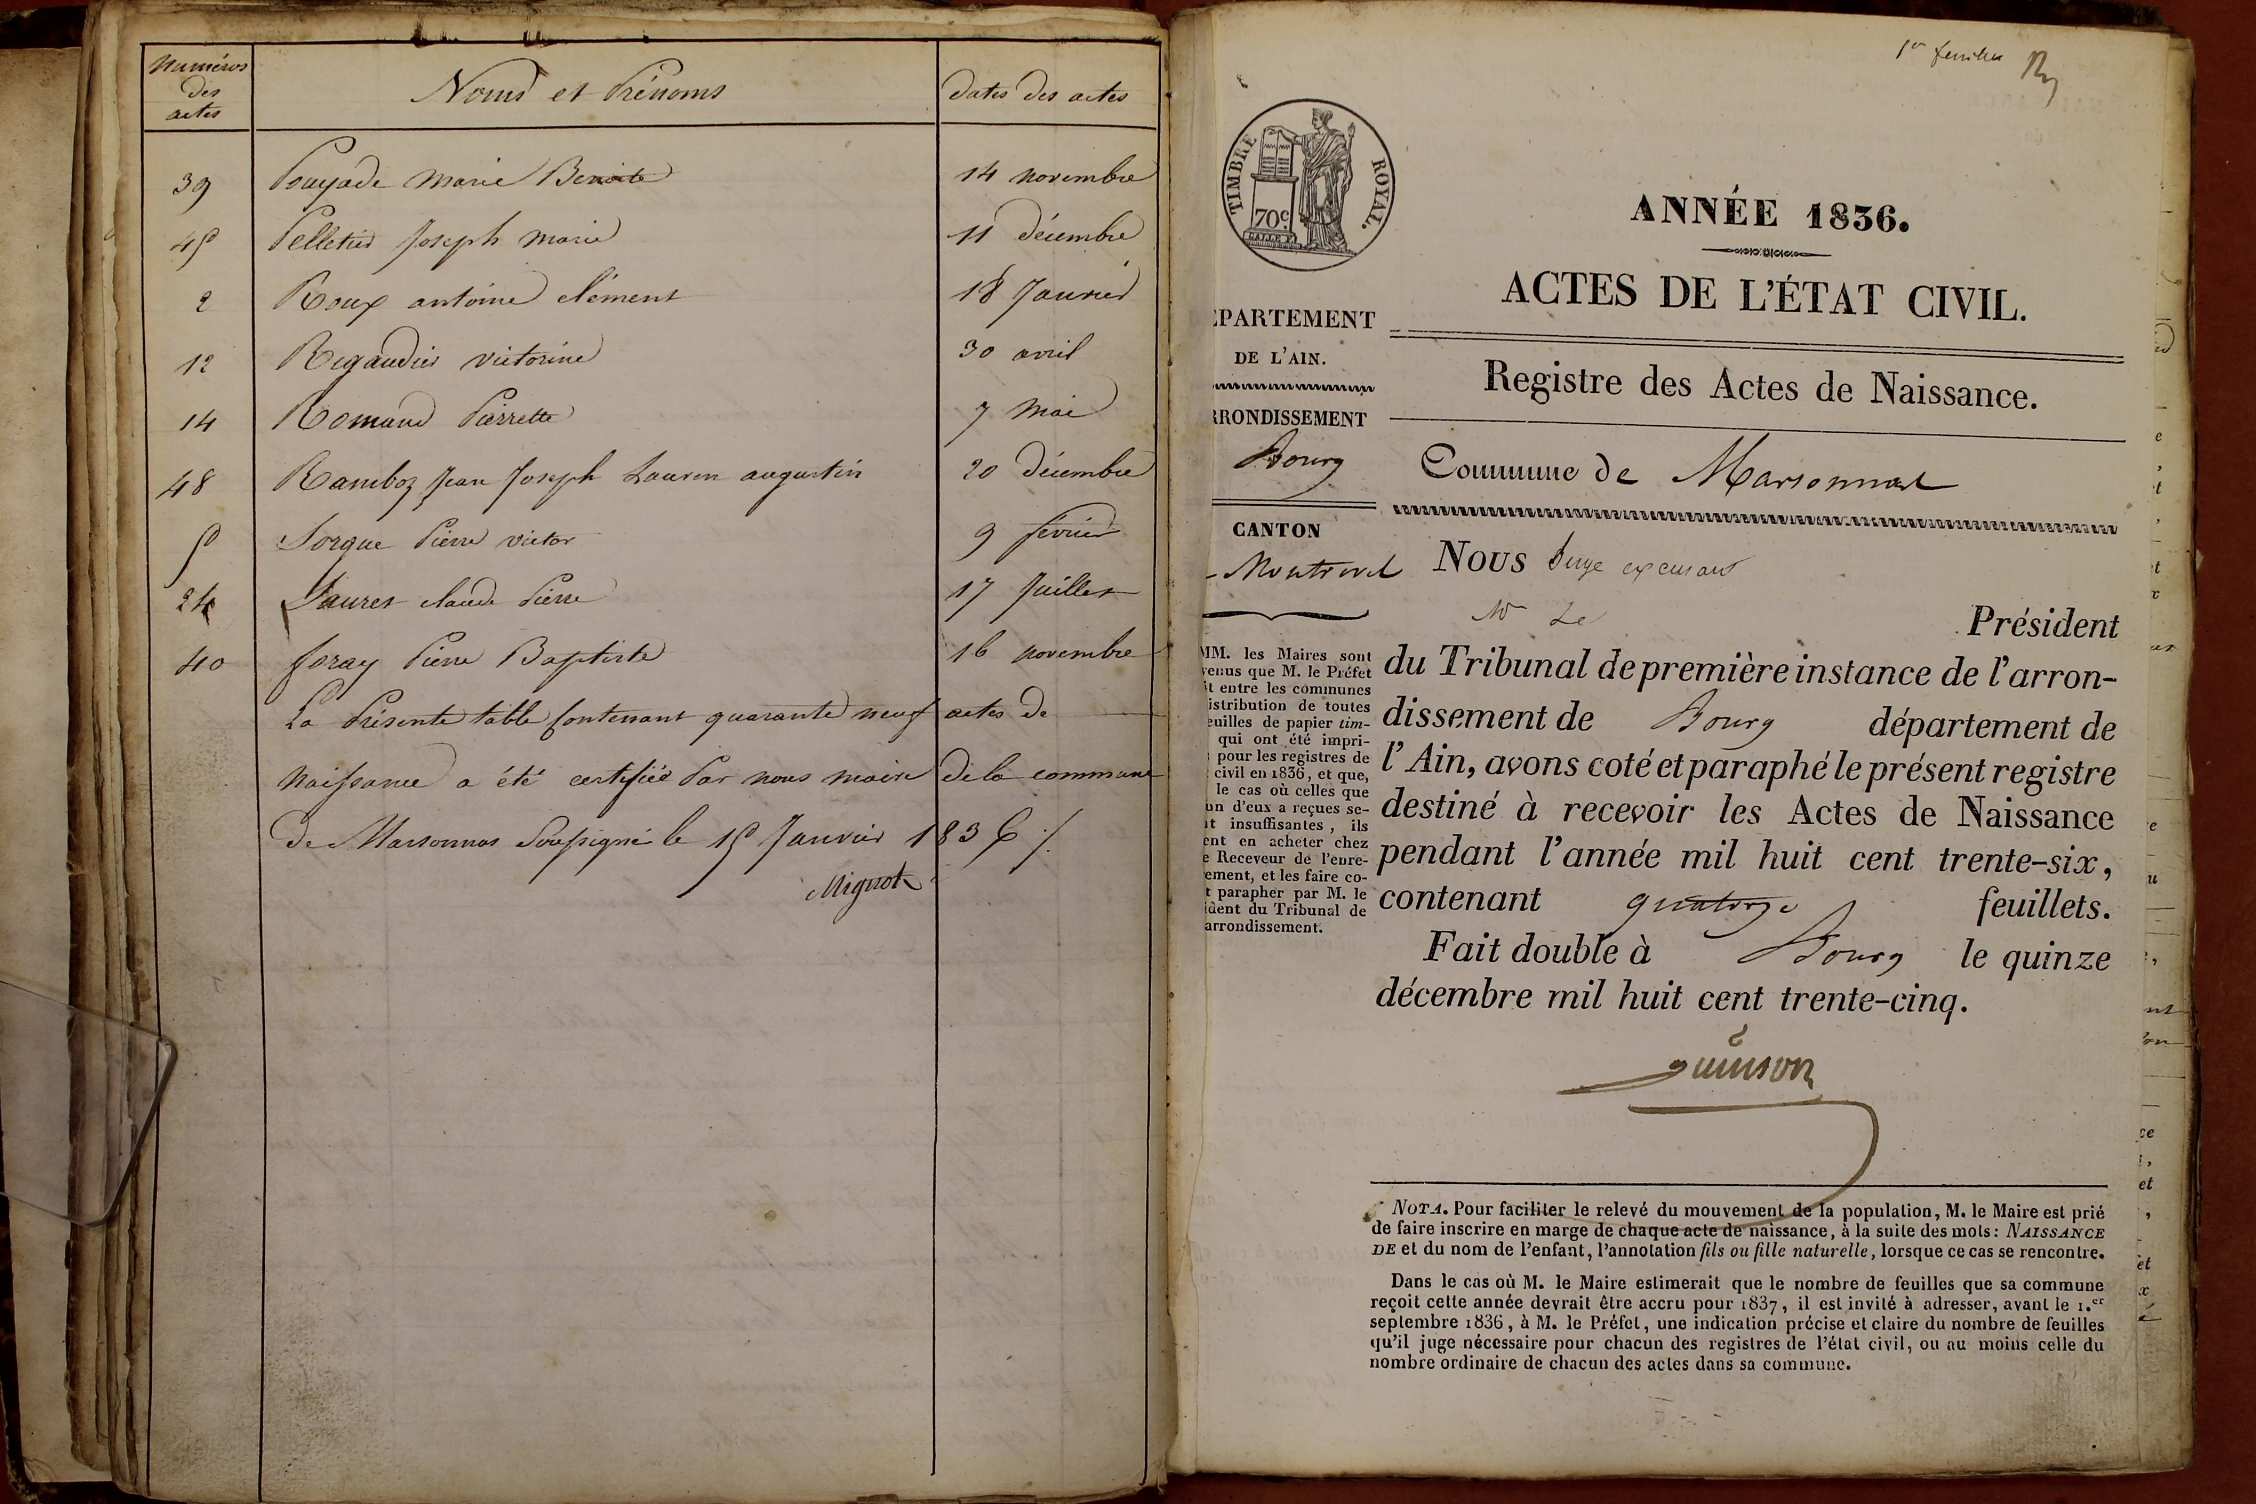 Numéros
des
actes
Noms et Prénoms
dates des actes
39 Pouyade marie Benoite 14 novembre
45 Pelletier Joseph marie 11 décembre
2 Roux antoine clément 18 Janvier
12 Regaudier victorine 30 avril
14 Romand Pierrette 7 Mai
48 Ramboz Jean Joseph Lauren augustin 20 décembre
5 Sorgue Pierre victor 9 fevrier
24 claude Pierre 17 Juillet
40 foray Pierre Baptiste 16 novembre
La Présente table Contenant quarante neuf actes de
Naissance a été certifiée Par nous maire de la commune
de Marsonnas Soussigné le 15 Janvier 1836 ./.
Mignot
1er feuillet
TIMBRE ROYAL.
70 c.
ANNÉE 1836.
ACTES DE L'ÉTAT CIVIL.
Registre des Actes de Naissance.
Commune de Marsonnas
ÉPARTEMENT
DE L'AIN.
RRONDISSEMENT
Bourg
CANTON
Montrevel
MM. les Maires sont
venus que M. le Préfet
it entre les communes
istribution de toutes
euilles de papier tim-
qui ont été impri-
pour les registres de
civil en 1836, et que,
le cas où celles que
un d'eux a reçues se-
it insuffisantes, ils
ent en acheter chez
e Receveur de l'enre-
ement, et les faire co-
t parapher par M. le
ident du Tribunal de
arrondissement.
NOUS Juge
Mr Le Président
du Tribunal de première instance de l'arron-
dissement de Bourg département de
l'Ain, avons coté et paraphé le présent registre
destiné à recevoir les Actes de Naissance
pendant l'année mil huit cent trente-six,
contenant quatorze feuillets.
Fait double à Bourg le quinze
décembre mil huit cent trente-cinq.
guinson
NOTA. Pour faciliter le relevé du mouvement de la population, M. le Maire est prié
de faire inscrire en marge de chaque acte de naissance, à la suite des mots: NAISSANCE
DE et du nom de l'enfant, l'annotation fils ou fille naturelle, lorsque ce cas se rencontre.
Dans le cas où M. le Maire estimerait que le nombre de feuilles que sa commune
reçoit cette année devrait être accru pour 1837, il est invité à adresser, avant le 1.er
septembre 1836, à M. le Préfet, une indication précise et claire du nombre de feuilles
qu'il juge nécessaire pour chacun des registres de l'état civil, ou au moins celle du
nombre ordinaire de chacun des actes dans sa commune.